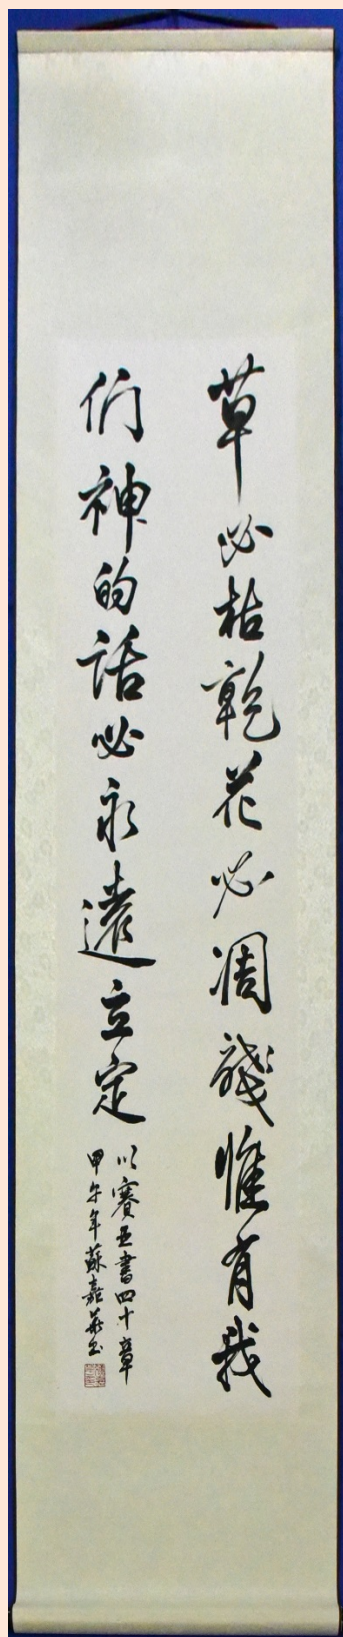 草必枯乾花必凋殘惟有我
們神的話必永遠立定
以賽亞書四十章
甲午年蘇嘉英書